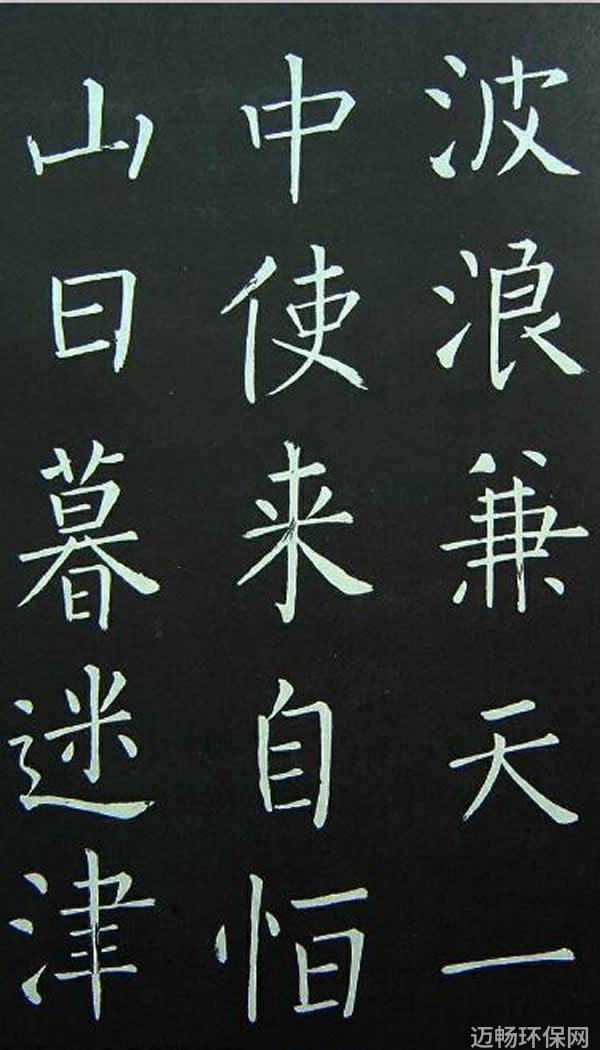 波浪兼天一
中使来自恒
山日暮迷津
迈畅环保网